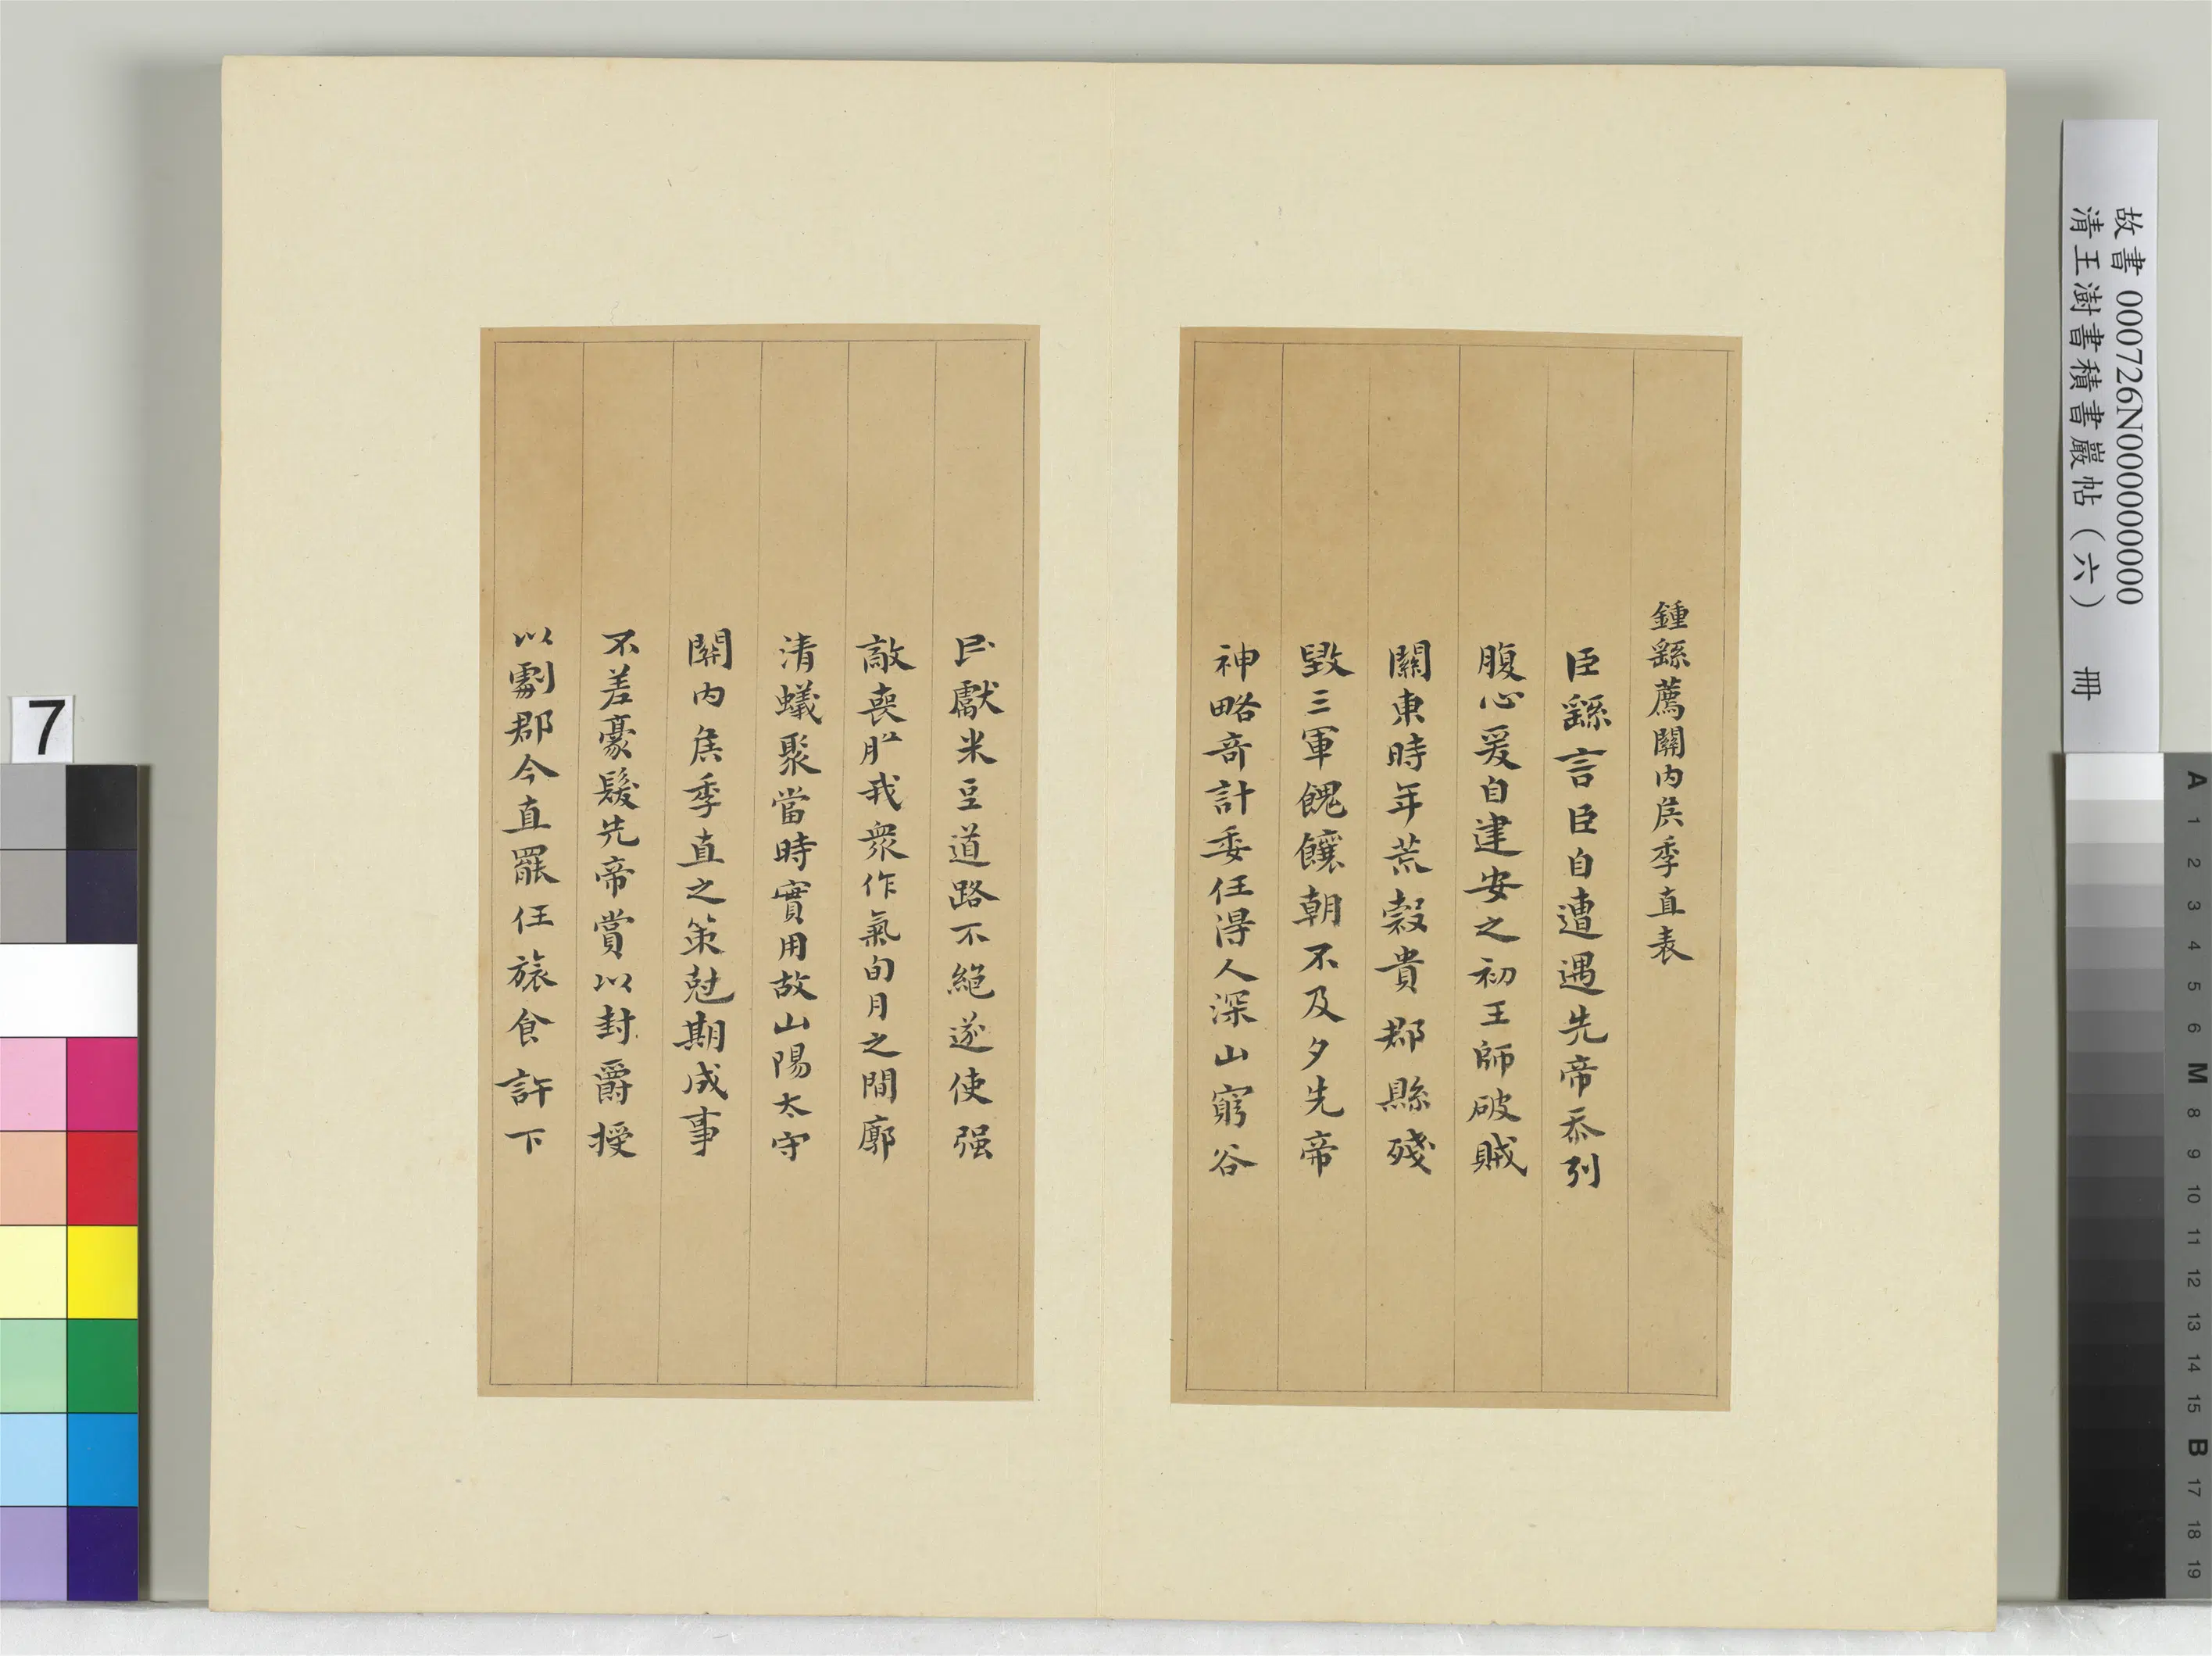 鍾繇薦關內侯季直表
臣繇言臣自遭遇先帝忝列
腹心爰自建安之初王師破賊
關東時年荒穀貴郡縣殘
毀三軍餽饟朝不及夕先帝
神略奇計委任得人深山窮谷
民獻米豆道路不絕遂使强
敵喪膽我衆作氣旬月之間廓
清蟻聚當時實用故山陽太守
關內侯季直之策尅期成事
不差豪髮先帝賞以封爵授
以劇郡今直罷任旅食許下
故書 000726N000000000
清王澍書積書巖帖（六） 冊
7
A
1
2
3
4
5
6
M
8
9
10
11
12
13
14
15
B
17
18
19